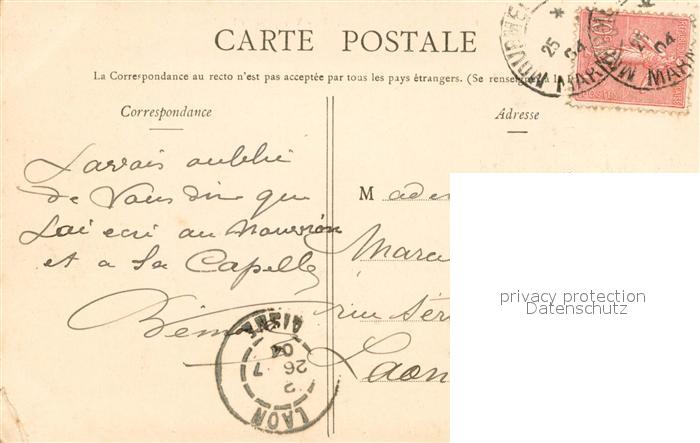 CARTE POSTALE
La Correspondance au recto n'est pas acceptée par tous les pays étrangers. (Se renseigner à la
Correspondance
Adresse
J'avais oublié
de vous dire que
J'ai écri au Nouvion
et a La Capelle
M ade
Marc
rue Sér
Laon
LAON
AISNE
26
7
04
25
04
MARNE
privacy protection
Datenschutz